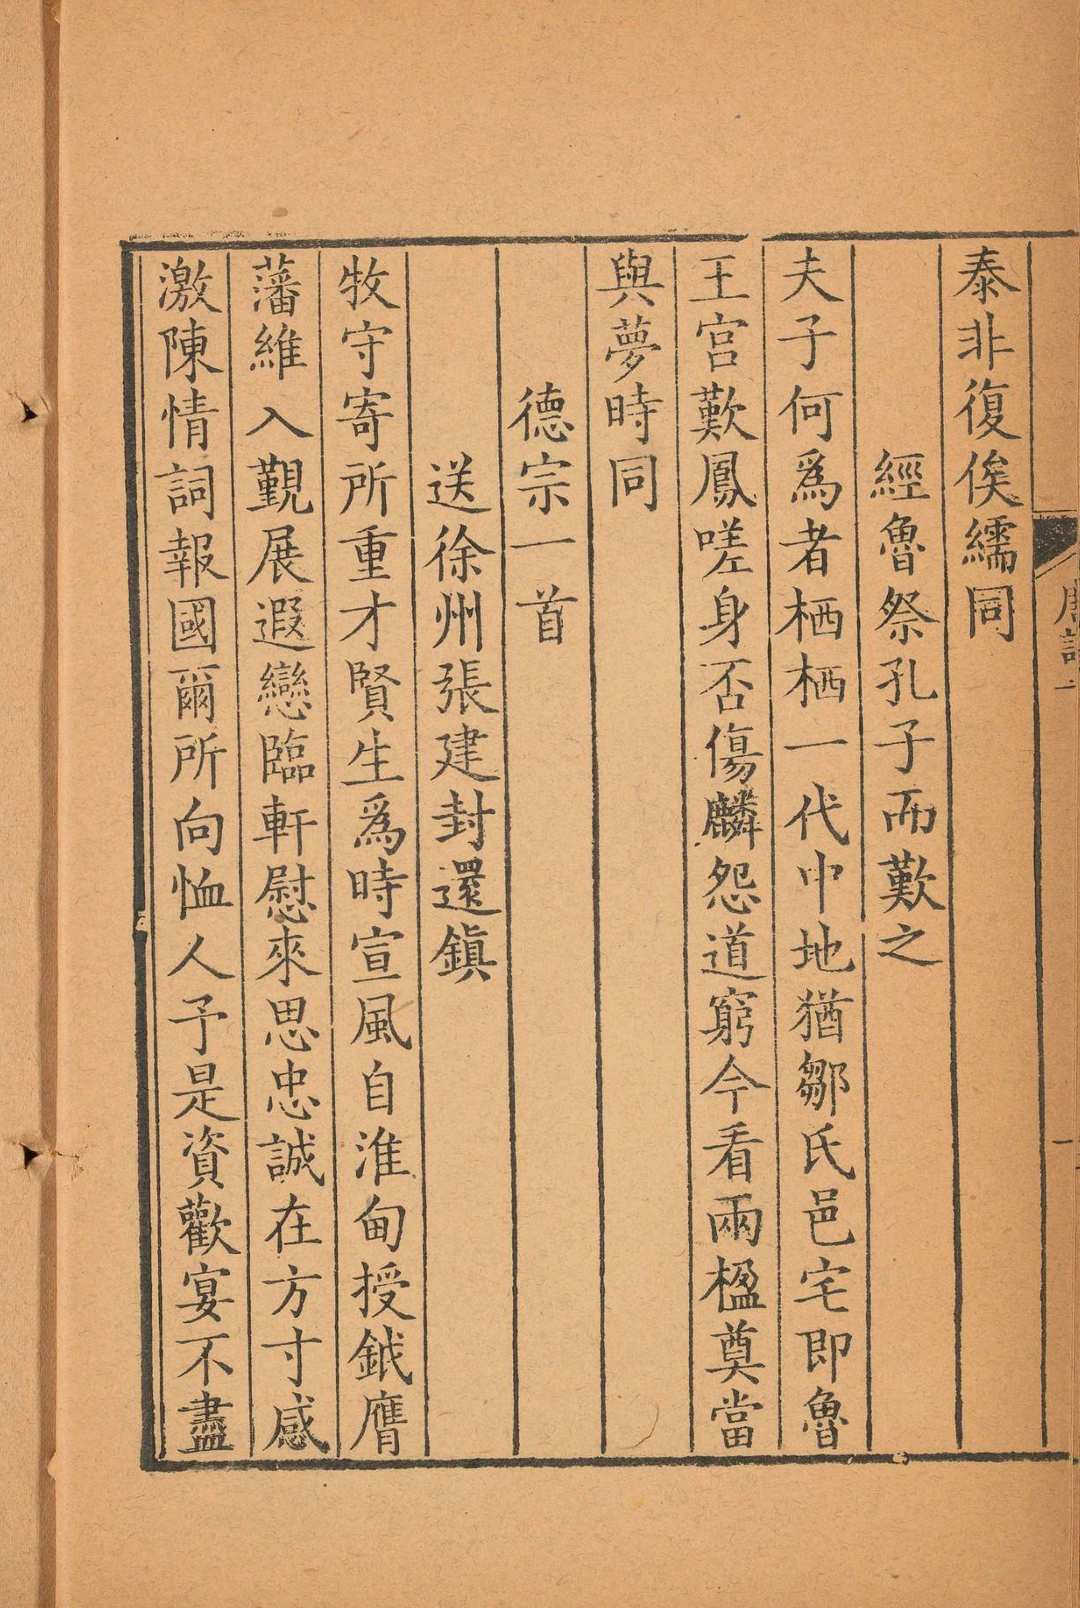 泰非復俟繻同
經魯祭孔子而歎之
夫子何爲者栖栖一代中地猶鄒氏邑宅即魯
王宮歎鳳嗟身否傷麟怨道窮今看兩楹奠當
與夢時同
德宗一首
送徐州張建封還鎮
牧守寄所重才賢生爲時宣風自淮甸授鉞膺
藩維入覲展遐戀臨軒慰來思忠誠在方寸感
激陳情詞報國爾所向恤人予是資歡宴不盡